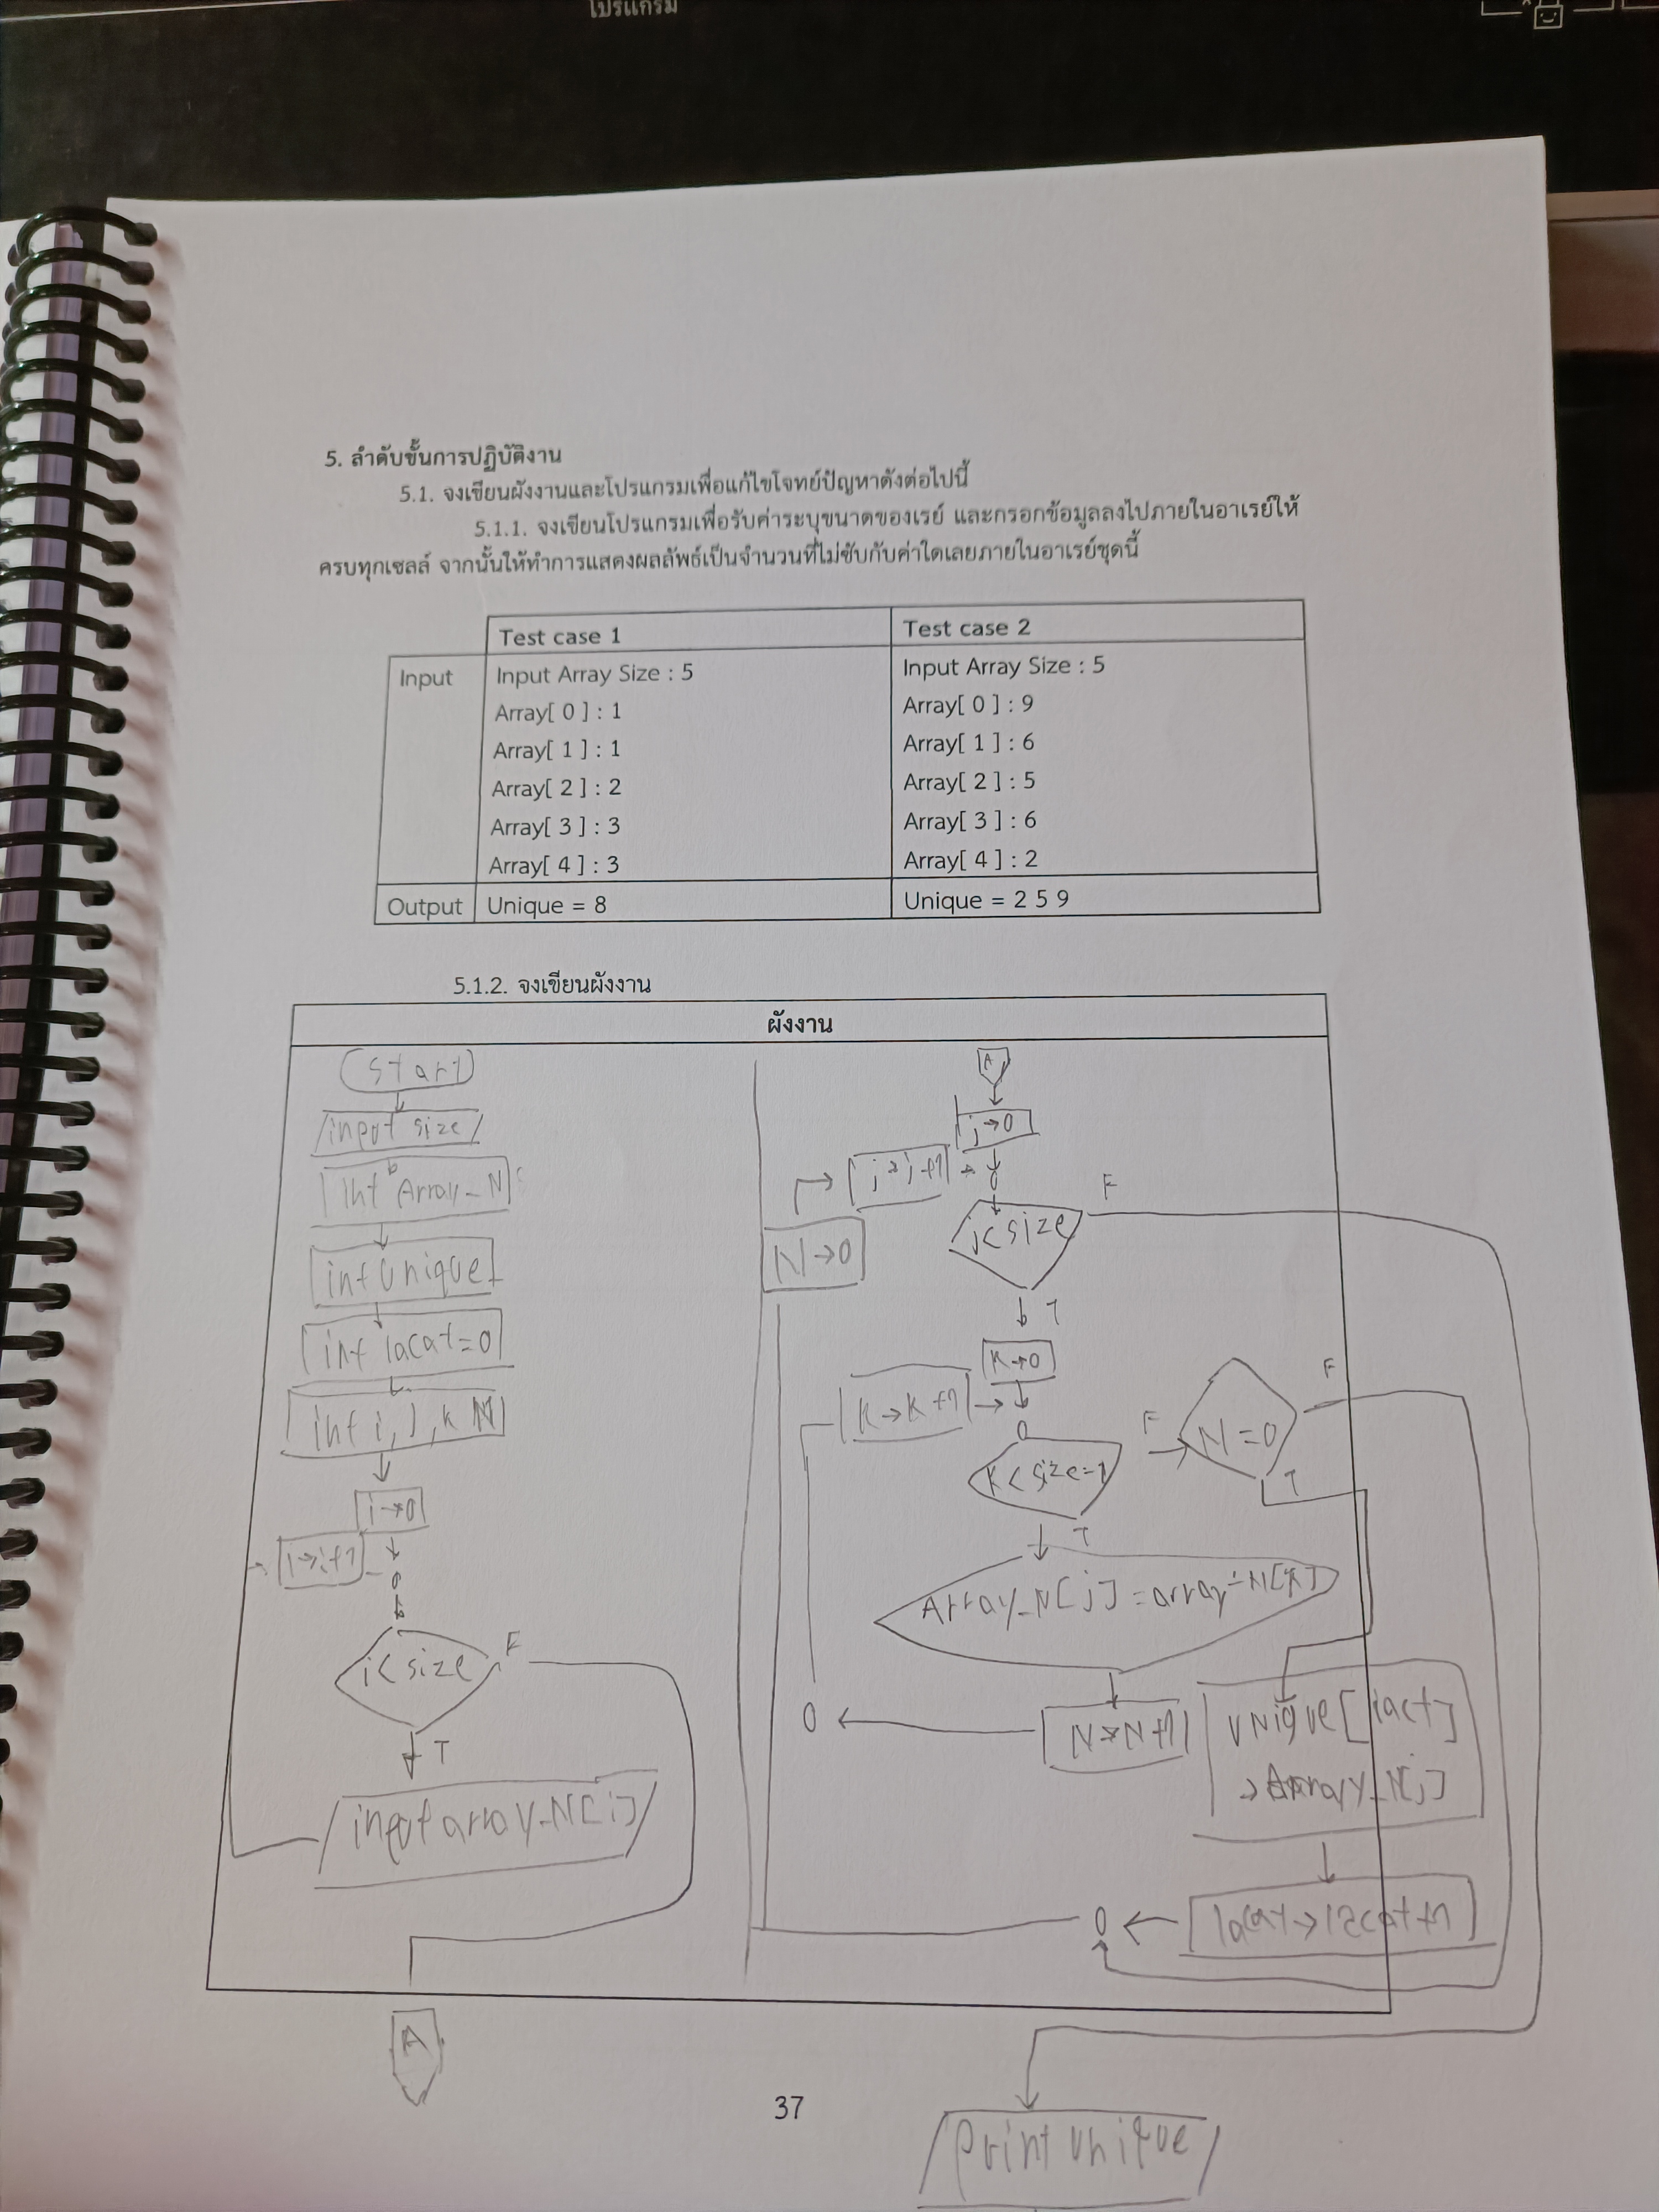 โปรแกรม
5. ลำดับขั้นการปฏิบัติงาน
5.1. จงเขียนผังงานและโปรแกรมเพื่อแก้ไขโจทย์ปัญหาดังต่อไปนี้
5.1.1. จงเขียนโปรแกรมเพื่อรับค่าระบุขนาดของเรย์ และกรอกข้อมูลลงไปภายในอาเรย์ให้
ครบทุกเซลล์ จากนั้นให้ทำการแสดงผลลัพธ์เป็นจำนวนที่ไม่ซับกับค่าใดเลยภายในอาเรย์ชุดนี้
Test case 1 Test case 2
Input Input Array Size : 5 Input Array Size : 5
Array[ 0 ] : 1 Array[ 0 ] : 9
Array[ 1 ] : 1 Array[ 1 ] : 6
Array[ 2 ] : 2 Array[ 2 ] : 5
Array[ 3 ] : 3 Array[ 3 ] : 6
Array[ 4 ] : 3 Array[ 4 ] : 2
Output Unique = 8 Unique = 2 5 9
5.1.2. จงเขียนผังงาน
ผังงาน
Start
input size
int Array_N
int Unique
int lacat=0
int i, j, k N
i→0
i→i+1
i< size
F
T
input array_N[i]
A
A
j→0
j→j+1
N→0
j< size
F
T
k→0
k→k+1
k< size=1
F
N=0
F
T
T
Array_N[j] = array-N[k]
N→N+1
Unique[lact]
→Array_N[j]
lacat→lacat+1
print unique
37